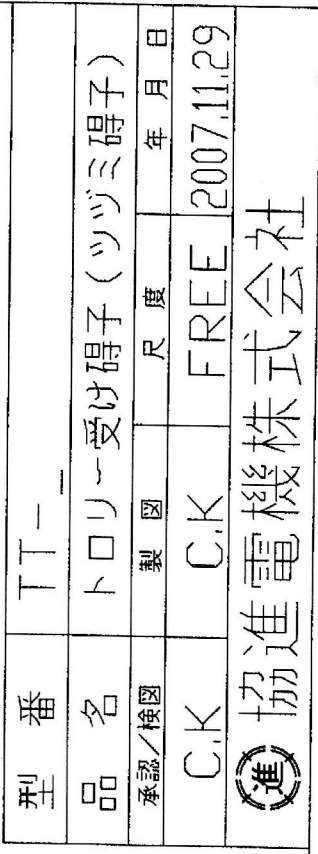 型 番 TT-
品 名 トロリー受け碍子(ツヅミ碍子)
承認/検図 製 図 尺 度 年 月 日
C.K C.K FREE 2007.11.29
進 協進電機株式会社